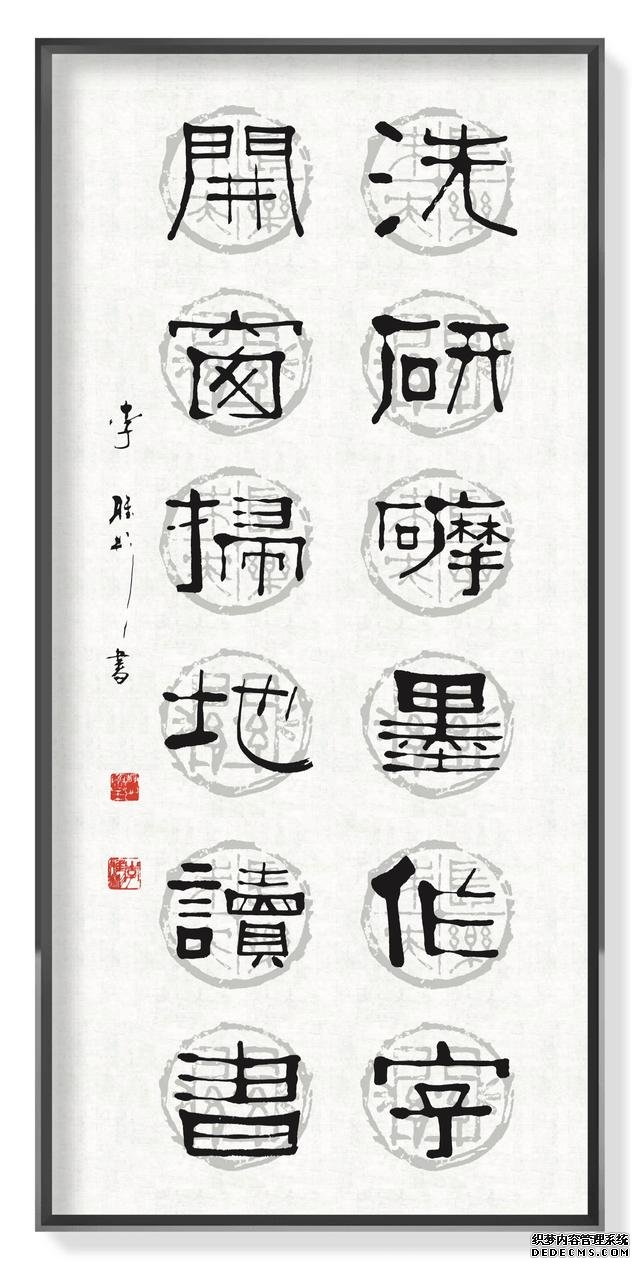 洗研磨墨作字
開窗掃地讀書
李 書
织梦内容管理系统
DEDECMS.COM